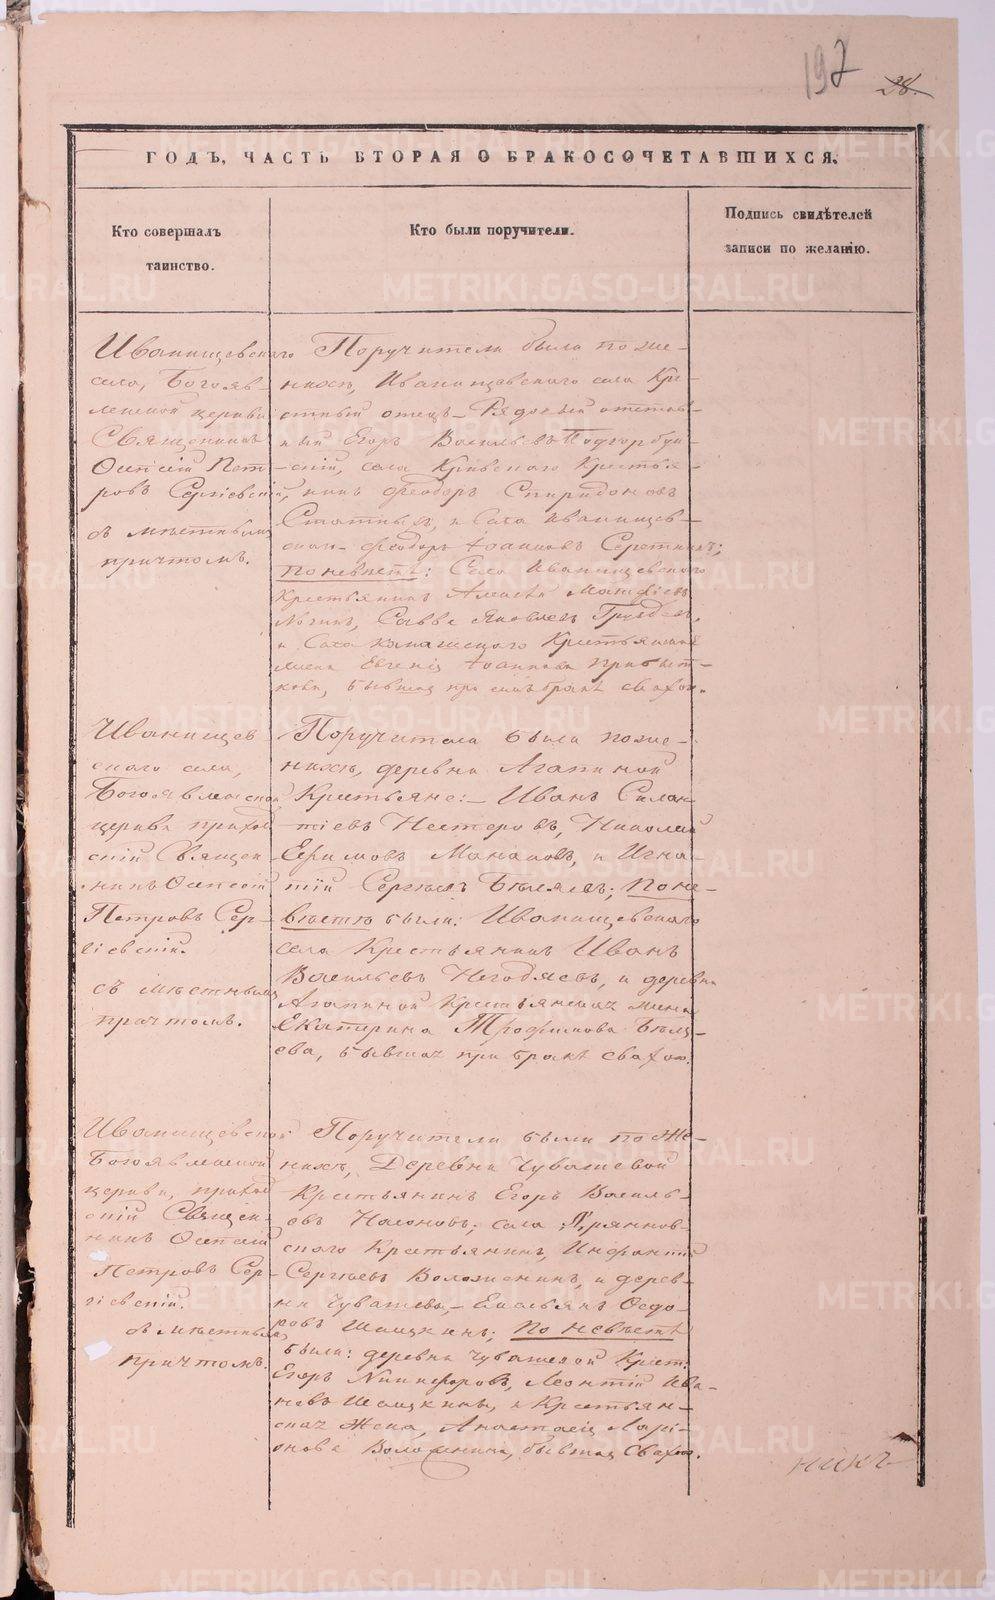 197
28.
ГОДЪ, ЧАСТЬ ВТОРАЯ О БРАКОСОЧЕТАВШИХСЯ.
Кто совершалъ
таинство.
Кто были поручители.
Подпись свидѣтелей
записи по желанію.
Иванищевскаго
села, Богояв-
ленской церкви
Священникъ
Петровъ Сергіевскій,
съ мѣстнымъ
причтомъ.
Поручители были по же-
нихѣ, Иванищевскаго села Кре-
стный отецъ - Рядовый отстав-
ный Егоръ Васильевъ Подгорбун-
скій, села Кривскаго Крестья-
нинъ Феодоръ Спиридоновъ
и села Иванищев-
скаго Феодоръ Іоанновъ
по невѣстѣ: Села Иванищевскаго
Крестьянинъ Алексѣй
Савва Яковлевъ
и Села Крестьянская
жена Евгенія Іоаннова
бывшая при семъ бракѣ свахою.
Иванищев
скаго села,
Богоявленской
церкви приход
скій Священ
никъ
Петровъ Сер-
гіевскій.
съ мѣстнымъ
причтомъ.
Поручители были по же-
нихѣ, деревни Агапиной
Крестьяне: - Иванъ Силан-
тіевъ Нестеровъ, Николай
Ефимовъ и Игна-
тій Сергѣевъ Бѣляевъ; По не-
вѣстѣ были: Иванищевскаго
села Крестьянинъ Иванъ
Васильевъ Негодяевъ, и деревни
Агапиной Крестьянская жена
Екатерина Трофимова Бѣля-
ева, бывшая при бракѣ свахою.
Иванищевской
Богоявленской
церкви, приход
скій Священ-
никъ
Петровъ Сер-
гіевскій.
съ мѣстнымъ
причтомъ.
Поручители были по Же-
нихѣ, Деревни Чувашевой
Крестьянинъ Егоръ Василь-
евъ Насоновъ; села
скаго Крестьянинъ,
Сергѣевъ Воложенинъ, и дерев-
ни Чувашевы - Емельянъ Ѳедо-
ровъ Шашкинъ; По невѣстѣ
были: деревни Чувашевой Крест.
Егоръ Никифоровъ, Леонтій Ива-
новъ Шашкины, и Крестьян-
ская Жена, Анастасія Ларі-
онова Воложенина, бывшая Свахою.
METRIKI.GASO-URAL.RU